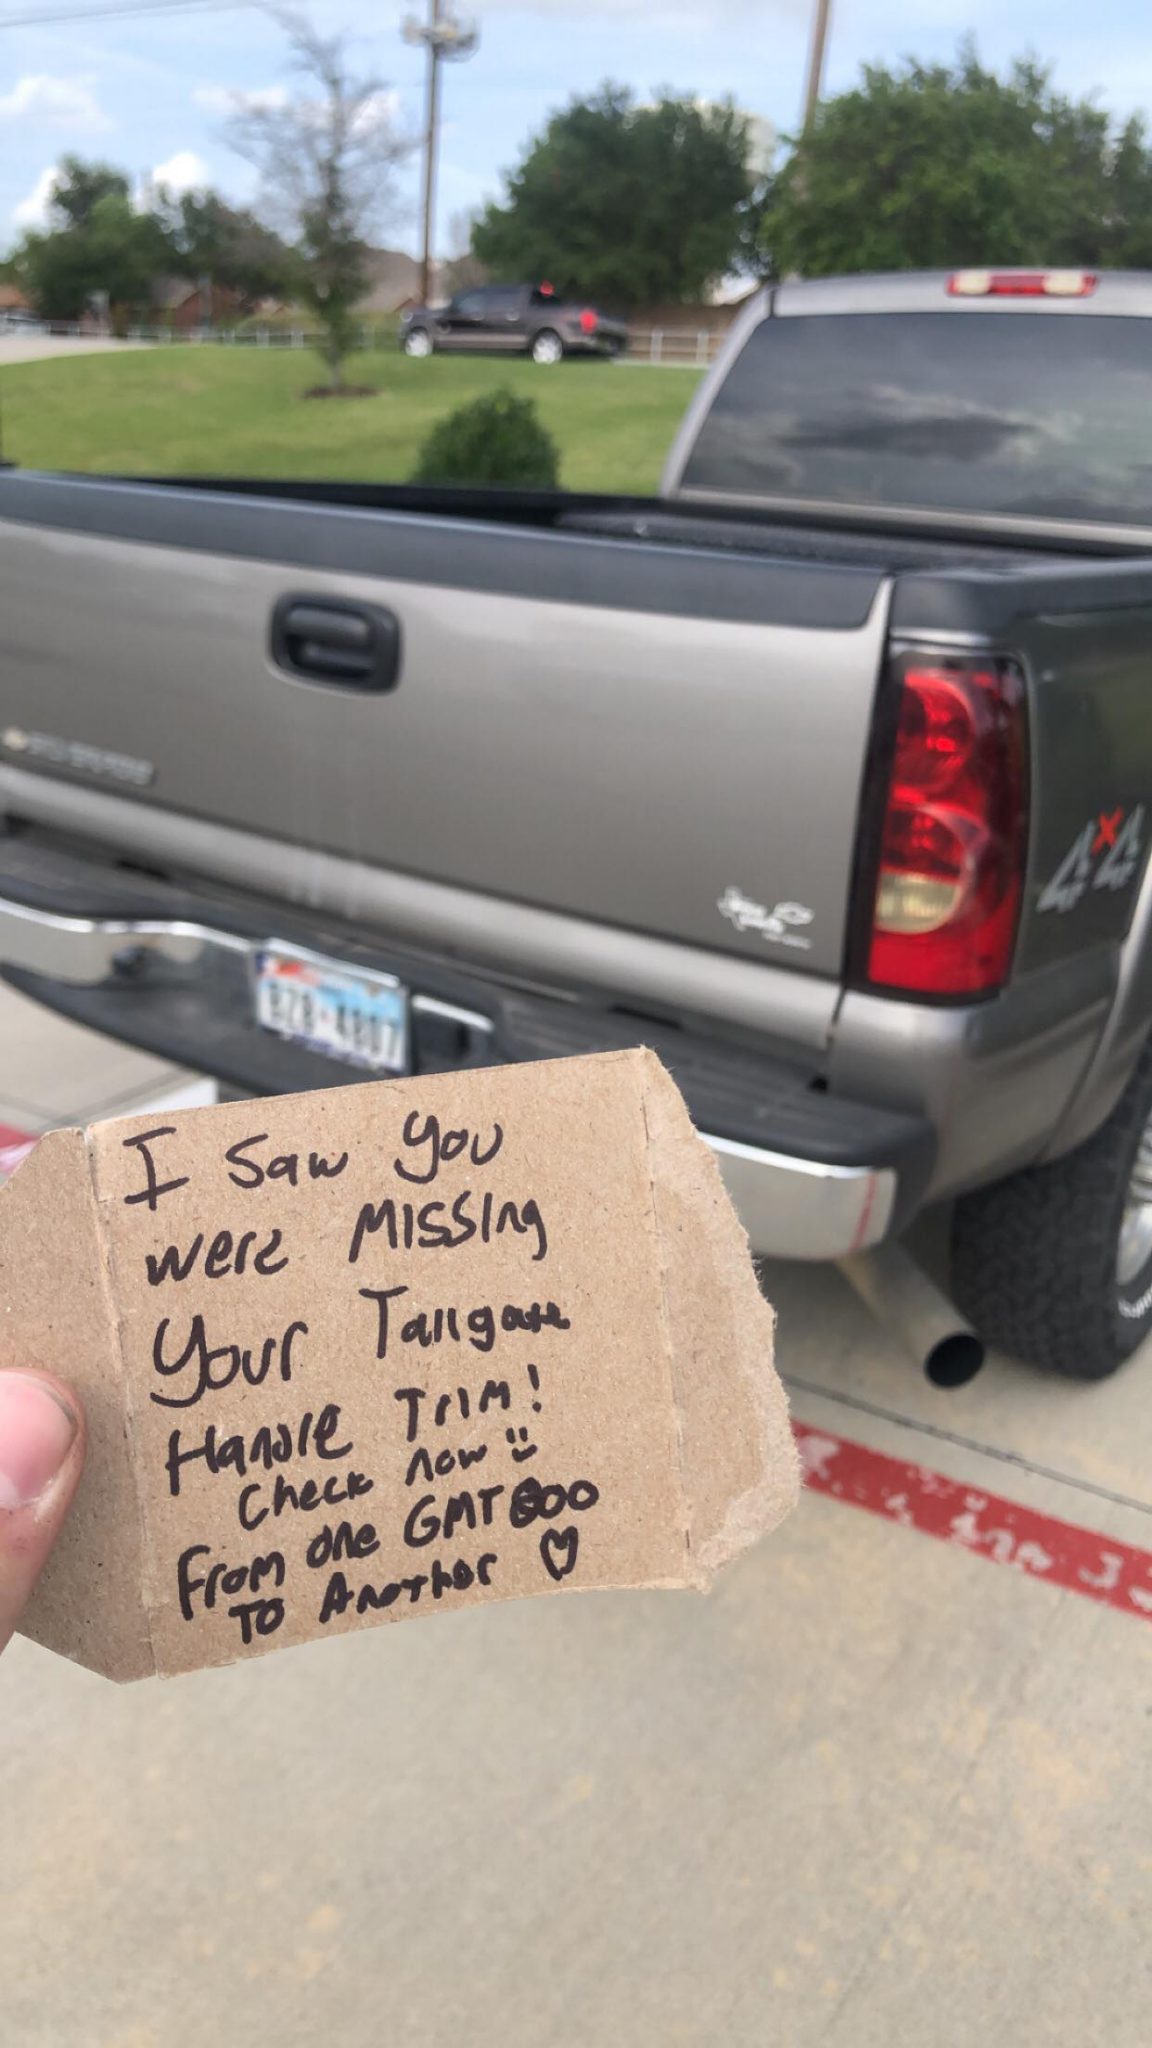 4x4
BZB·4807
I Saw you
were Missing
Your Tailgate
Handle Trim!
Check now
From one GMT800
To Another